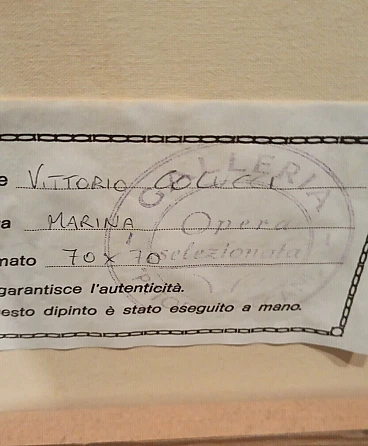 e VITTORIO COLUCCI
a MARINA
mato 70 x 70
garantisce l'autenticità.
esto dipinto è stato eseguito a mano.
GALLERIA
Opera
selezionata